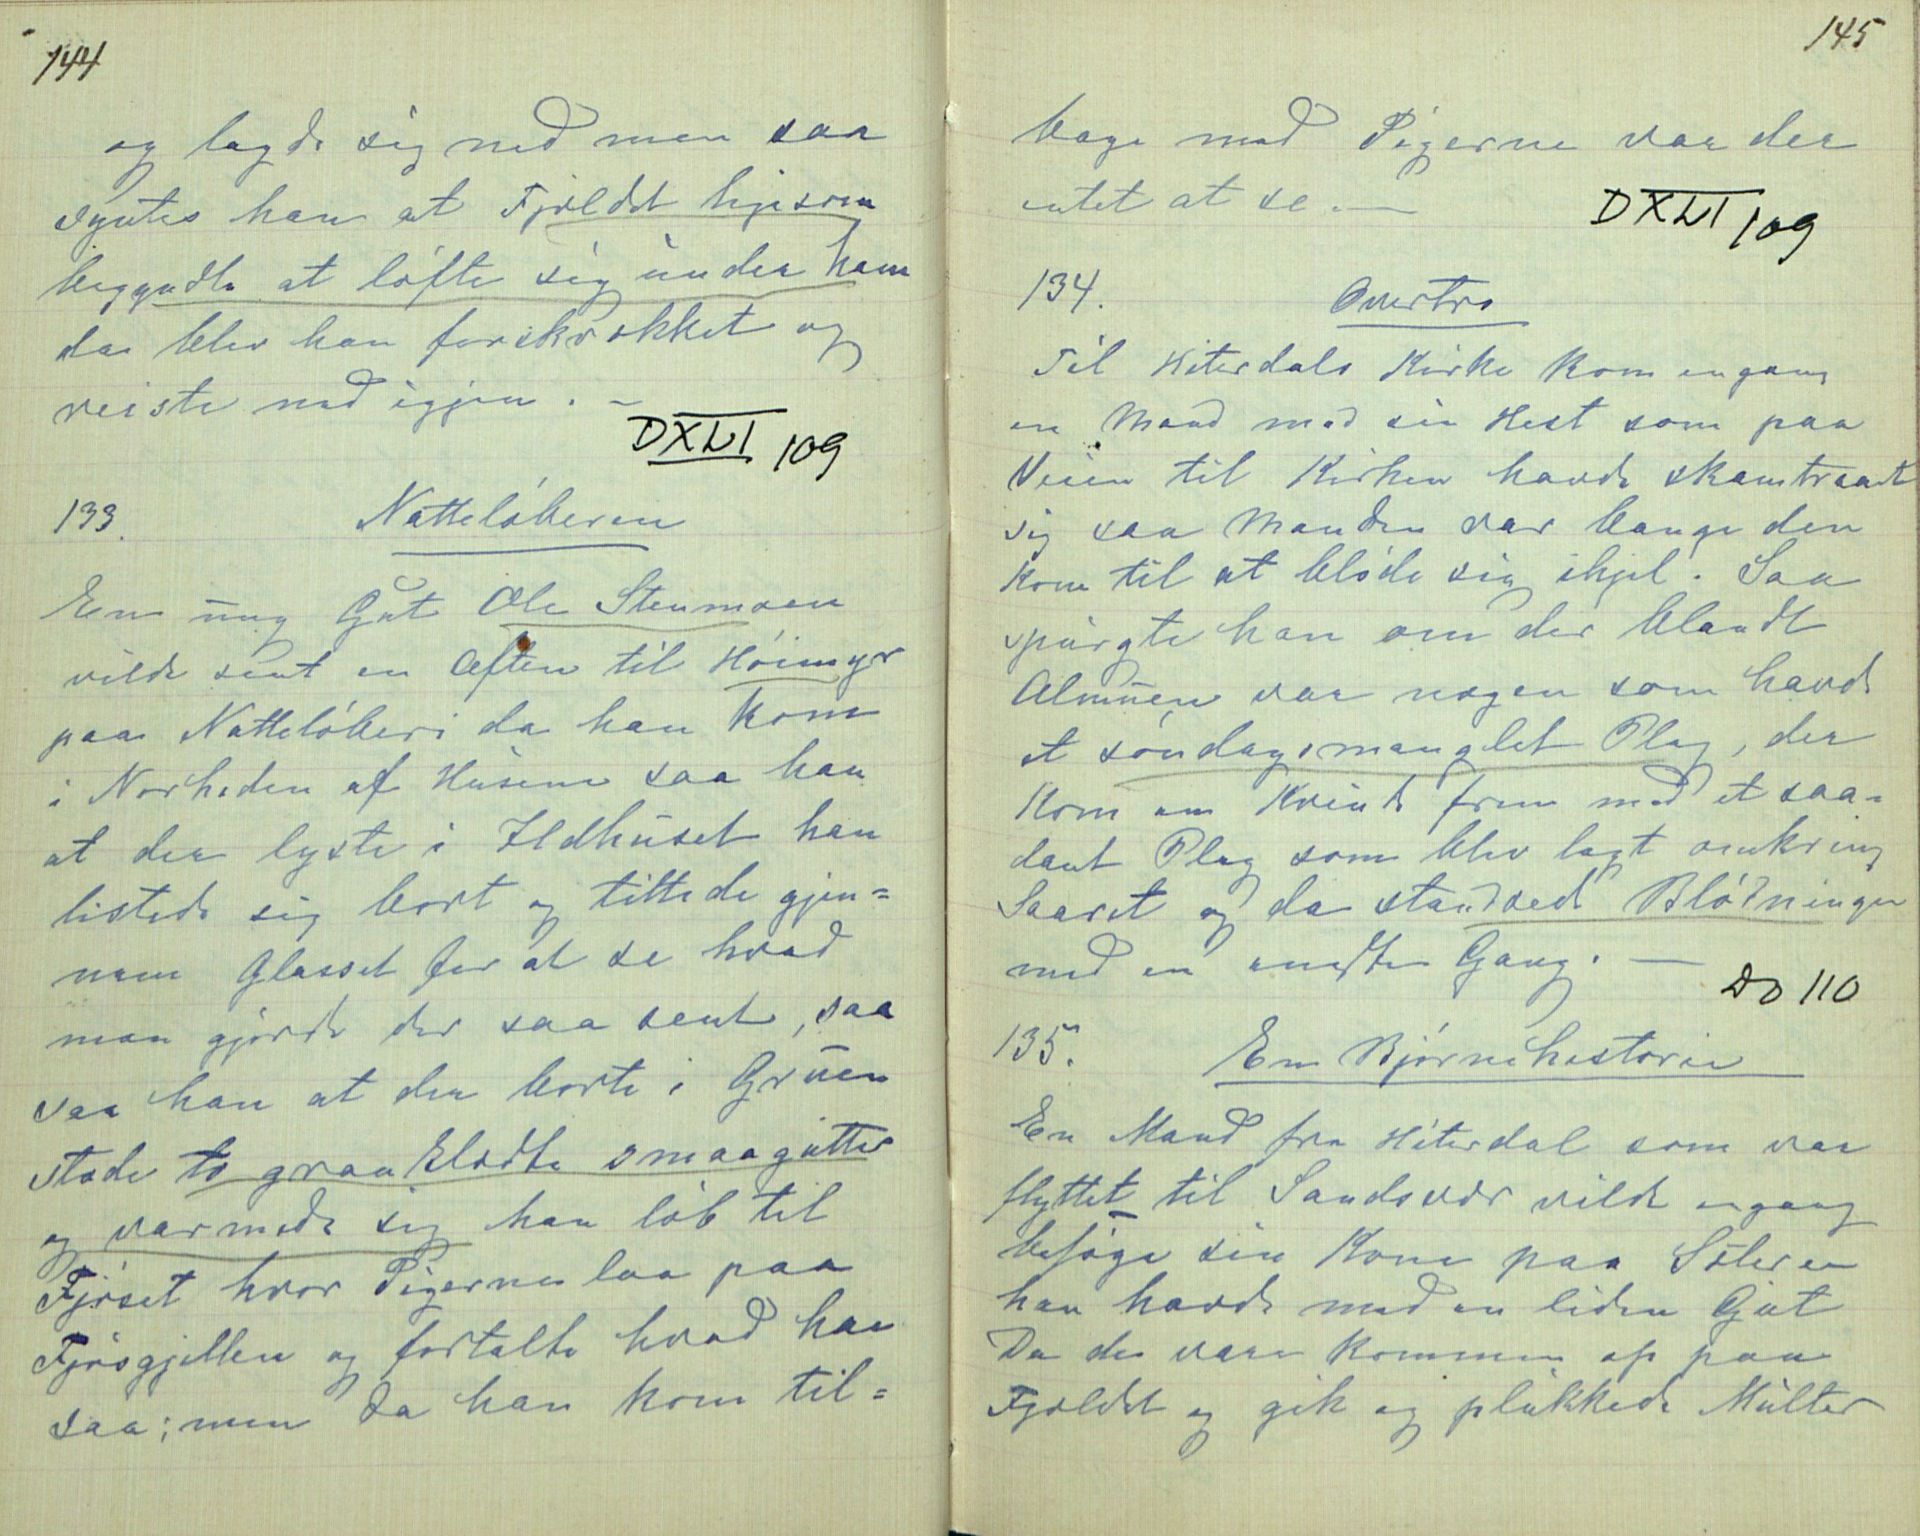 144
og lagde sig ned men saa
syntes han at Fjeldet ligesom
begyndte at løfte sig under ham
da blev han forskrækket og
reiste ned igjen. –
DXLI 109
133. Natteløberen
En ung Gut Ole Stenmoen
vilde sent en Aften til Høimyr
paa Natteløberi da han kom
i Nærheden af Husene saa han
at der lyste i Ildhuset han
listede sig bort og tittede gjen=
nem Glasset for at se hvad
man gjorde der saa sent, saa
saa han at der borte i Gruen
stode to graaklædte smaagutter
og varmede sig han løb til
Fjøset hvor Pigerne laa paa
Fjøsgjellen og fortalte hvad han
saa; men da han kom til=
145
bage med Pigerne var der
intet at se. —
DXLI 109
134. Overtro
Til Hiterdals Kirke kom engang
en Mand med sin Hest som paa
Veien til Kirken havde skamtraadt
sig saa Manden var bange den
kom til at bløde sig ihjel. Saa
spurgte han om der blandt
Almuen var nogen som havde
et søndagsmanglet Plag, der
kom en Kvinde frem med et saa=
dant Plag som blev lagt omkring
Saaret og da standsede Blødningen
med en eneste Gang. —
DO 110
135. En Bjørnehistorie
En Mand fra Hiterdal som var
flyttet til Sandsvær vilde engang
besøge sin Kone paa Sæteren
han havde med en liden Gut
Da de vare kommen op paa
Fjeldet og gik og plukkede Multer